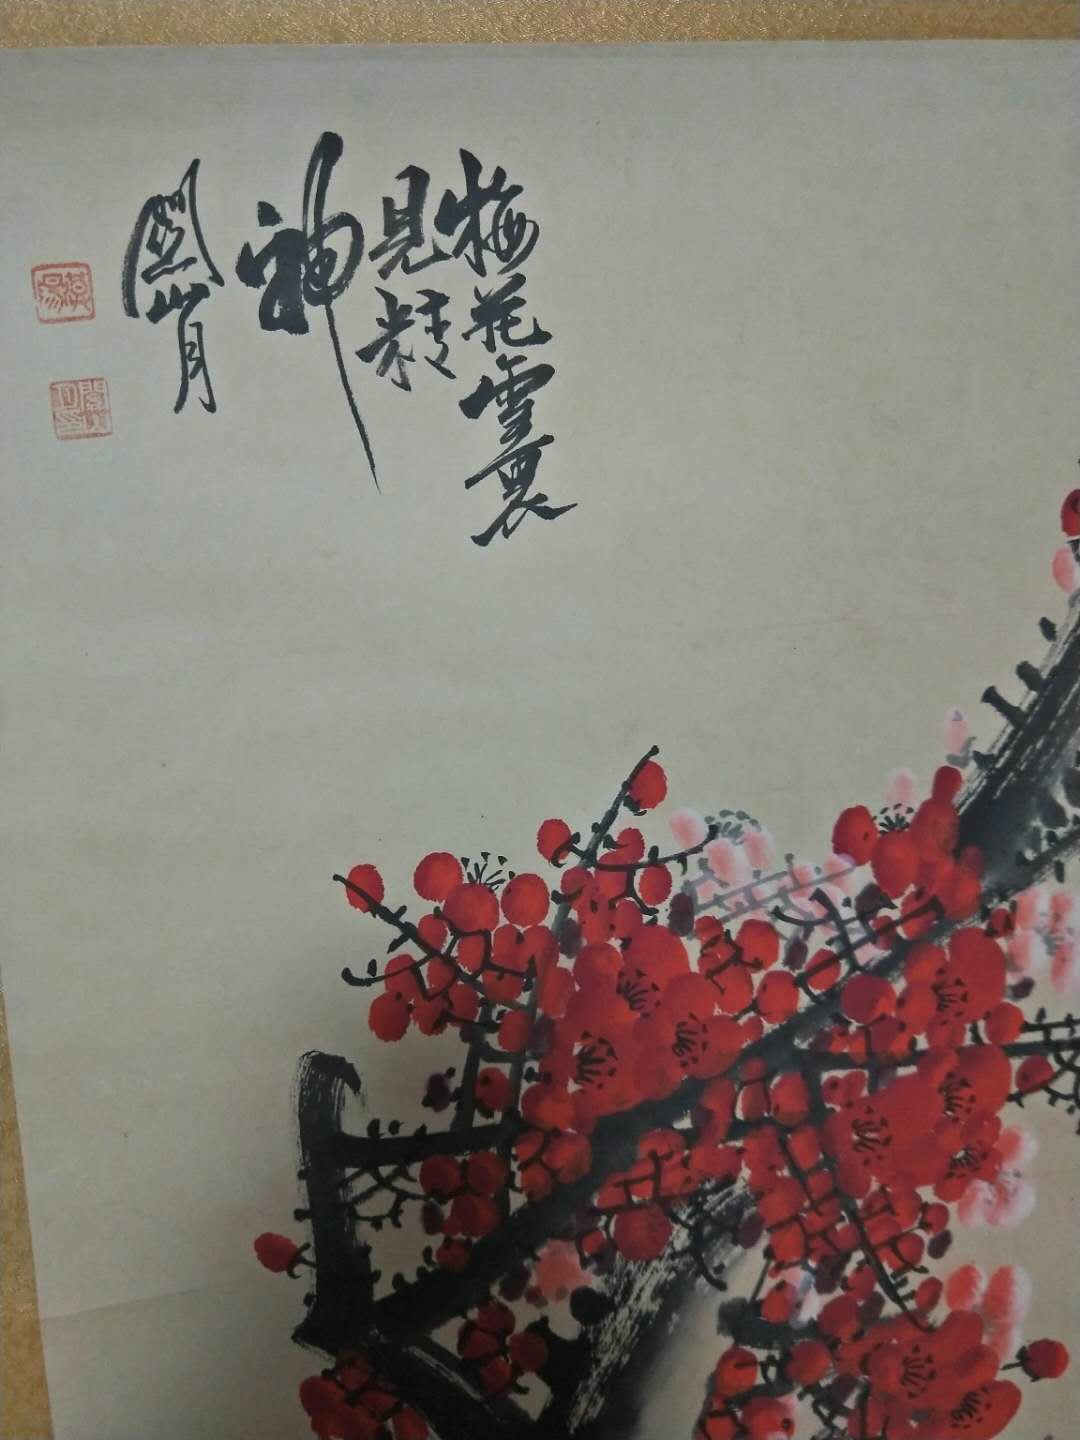 梅花雪裏
見精
神
關山月